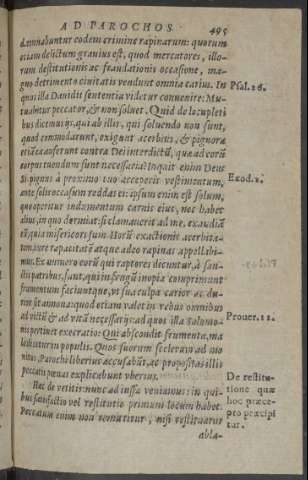 AD PAROCHOS 495
damnabuntur eodem crimine rapinarum: quorum
etiam delictum grauius est, quod mercatores, illo-
rum destitutionis ac fraudationis occasione, ma-
gno detrimento ciuitatis vendunt omnia carius. In
quos illa Dauidis sententia videtur conuenire: Mu-
tuabitur peccator, & non soluet. Quid de locupleti
bus dicemus ijs, qui ab illis, qui soluendo non sunt,
quod commodarunt, exigunt acerbius, & pignora
etiã ea auferunt contra Dei interdictũ, quæ ad eorũ
corpus tuendum sunt necessaria? Inquit enim Deus
Si pignus à proximo tuo acceperis vestimentum,
ante solis occasum reddas ei: ipsum enim est solum,
quo operitur indumentum carnis eius, nec habet
aliud, in quo dormiat: si clamauerit ad me, exaudiã
eũ, quia misericors sum. Horũ exactionis acerbita-
tem, iure rapacitatẽ atque adeo rapinas appellabi-
mus. Ex numero eorũ qui raptores dicuntur, à san-
ctis patribus, sunt, qui in frugũ inopia comprimunt
frumentum faciuntque, vt sua culpa carior ac du-
rior sit annona: quod etiam valet in rebus omnibus
ad victũ & ad vitã necessarijs: ad quos illa Salomo-
nis pertinet execratio: Qui abscondit frumenta, ma
ledicetur in populis. Quos suorum scelerum ad mo
nitos Parochi liberius accusabũt, ac propositas illis
peccatis pœnas explicabunt vberius.
Hæc de vetitis: nunc ad iussa veniamus: in qui-
bus satisfactio vel restitutio primum locum habet.
Peccatum enim non remittitur, nisi restituatur
abla-
Psal. 26.
Exod. 2.
Prouer. 11.
De restitu-
tione quæ
hoc præce-
pto præcipi
tur.